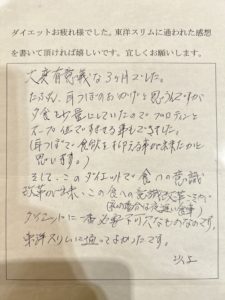 ダイエットお疲れ様でした。東洋スリムに通われた感想
を書いて頂ければ嬉しいです。宜しくお願いします。
大変有意義な3ヶ月でした。
たぶん、耳つぼのおかげと思うんですが
夕食を少量にしていたのでプロテインと
スープ位で済ませる事もできました。
(耳つぼで食欲を抑える事が出来たかと
思います。)
そして、このダイエットで食への意識
改革が出来、この食への意識改革こそが
(私の場合は夜遅い食事)
ダイエットに一番必要不可欠なものなのです。
東洋スリムに通ってよかったです。